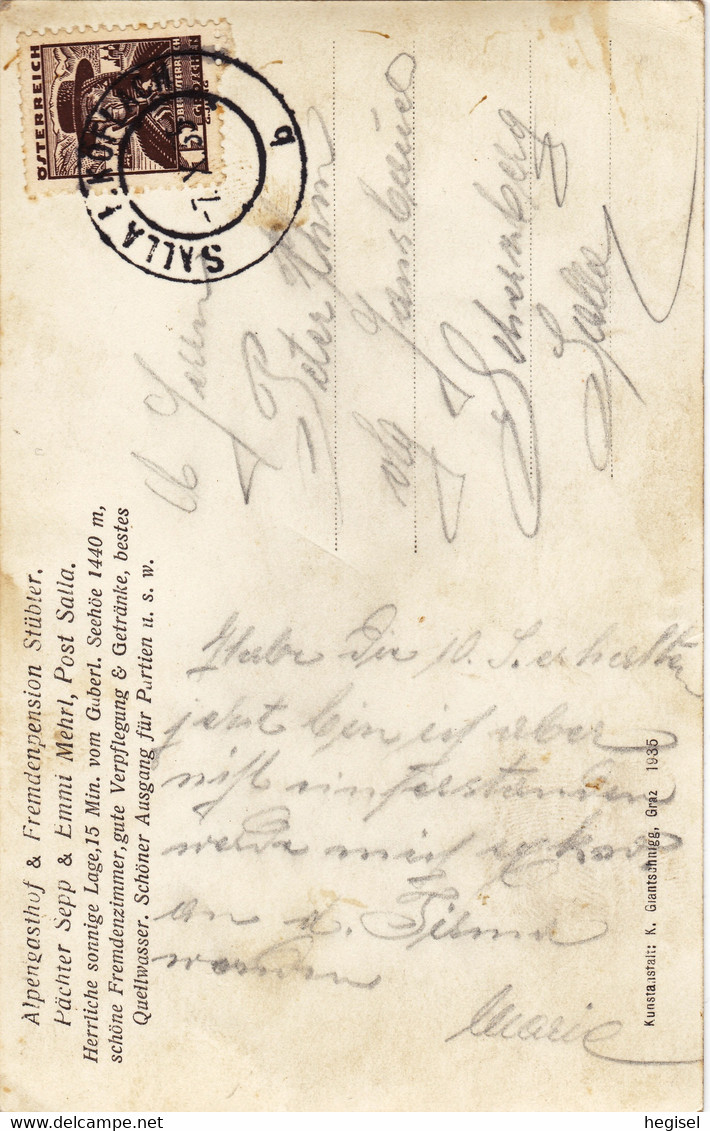 Alpengasthof & Fremdenpension Stübler.
Pächter Sepp & Emmi Mehrl, Post Salla.
Herrliche sonnige Lage, 15 Min. vom Gaberl. Seehöe 1440 m,
schöne Fremdenzimmer, gute Verpflegung & Getränke, bestes
Quellwasser. Schöner Ausgang für Partien u. s. w.
Habe die 10. S. erhalten
jetzt bin ich aber
nicht einferstanden
werde mich
an d. Firma
wenden
Marie
Kunstanstalt: K. Glantschnigg, Graz 1935
ÖSTERREICH
SALLA b. KÖFLACH
b
Herrn
Peter
vlg
Scherzberg
Salla
hegisel